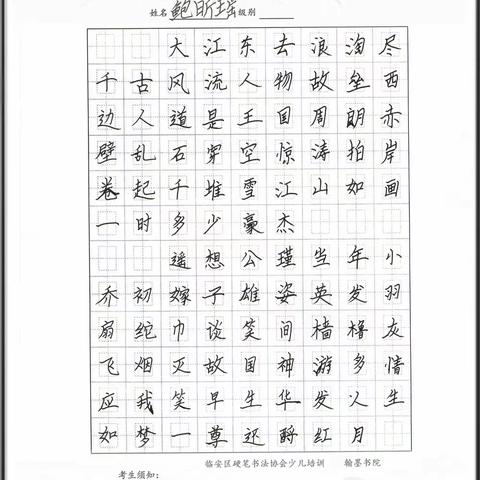 姓名 鲍昕瑶 级别
大江东去浪淘尽
千古风流人物故垒西
边人道是王国周朗赤
壁乱石穿空惊涛拍岸
卷起千堆雪江山如画
一时多少豪杰
遥想公瑾当年小
乔初嫁子雄姿英发羽
扇纶巾谈笑间樯橹灰
飞烟灭故国神游多情
应我笑早生华发人生
如梦一尊还酹红月
临安区硬笔书法协会少儿培训 翰墨书院
考生须知：